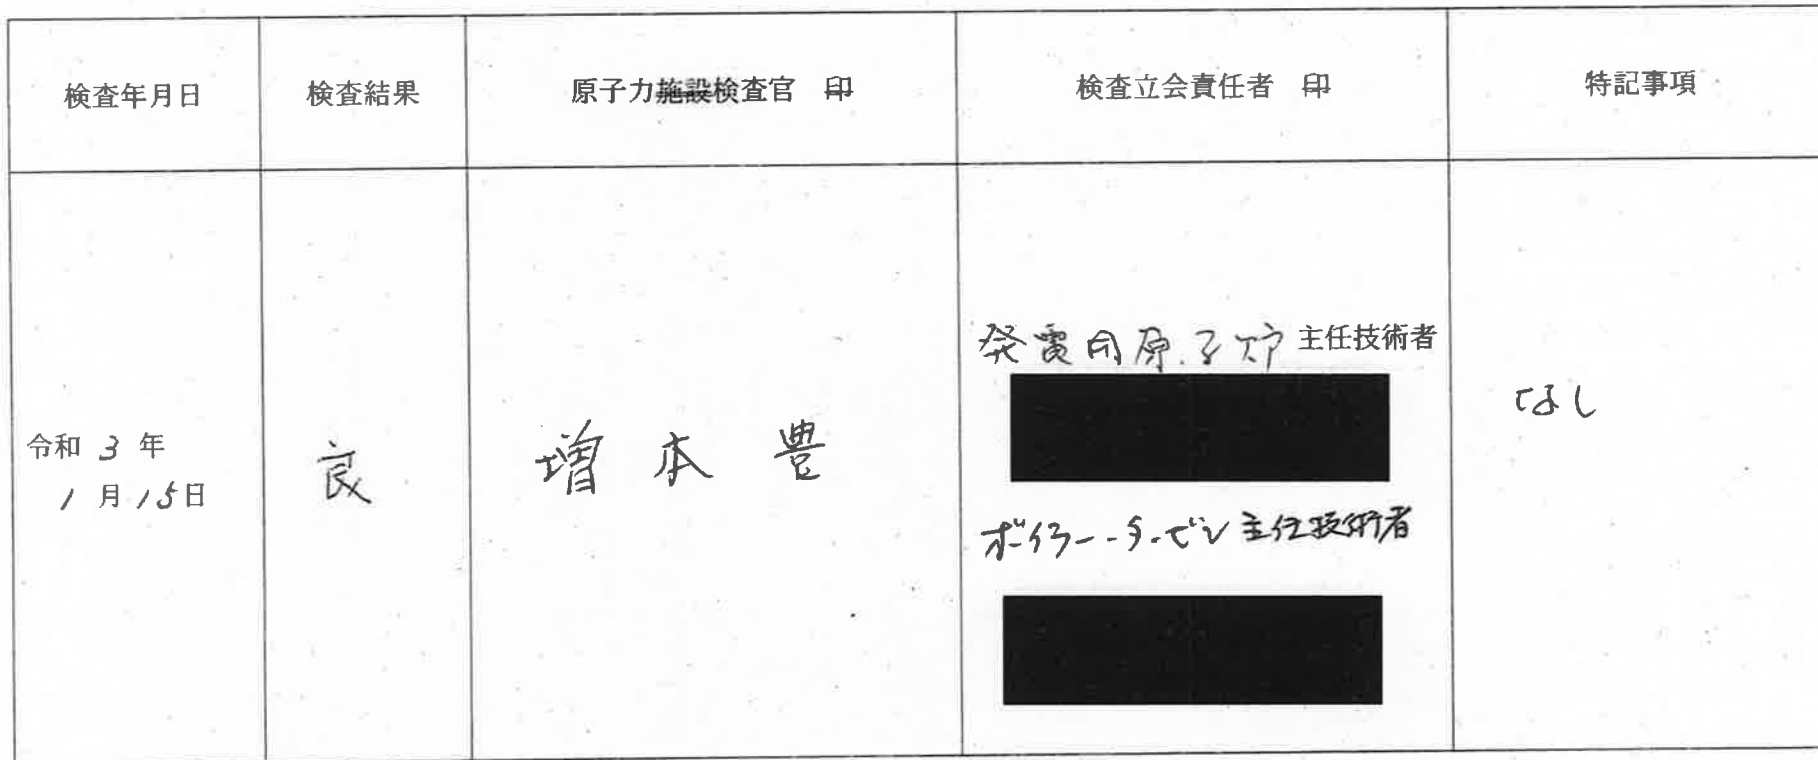 検査年月日
検査結果
原子力施設検査官 印
検査立会責任者 印
特記事項
令和 3 年
1 月 15日
良
増 本 豊
発電用原子炉 主任技術者
ボイラー・タービン 主任技術者
なし